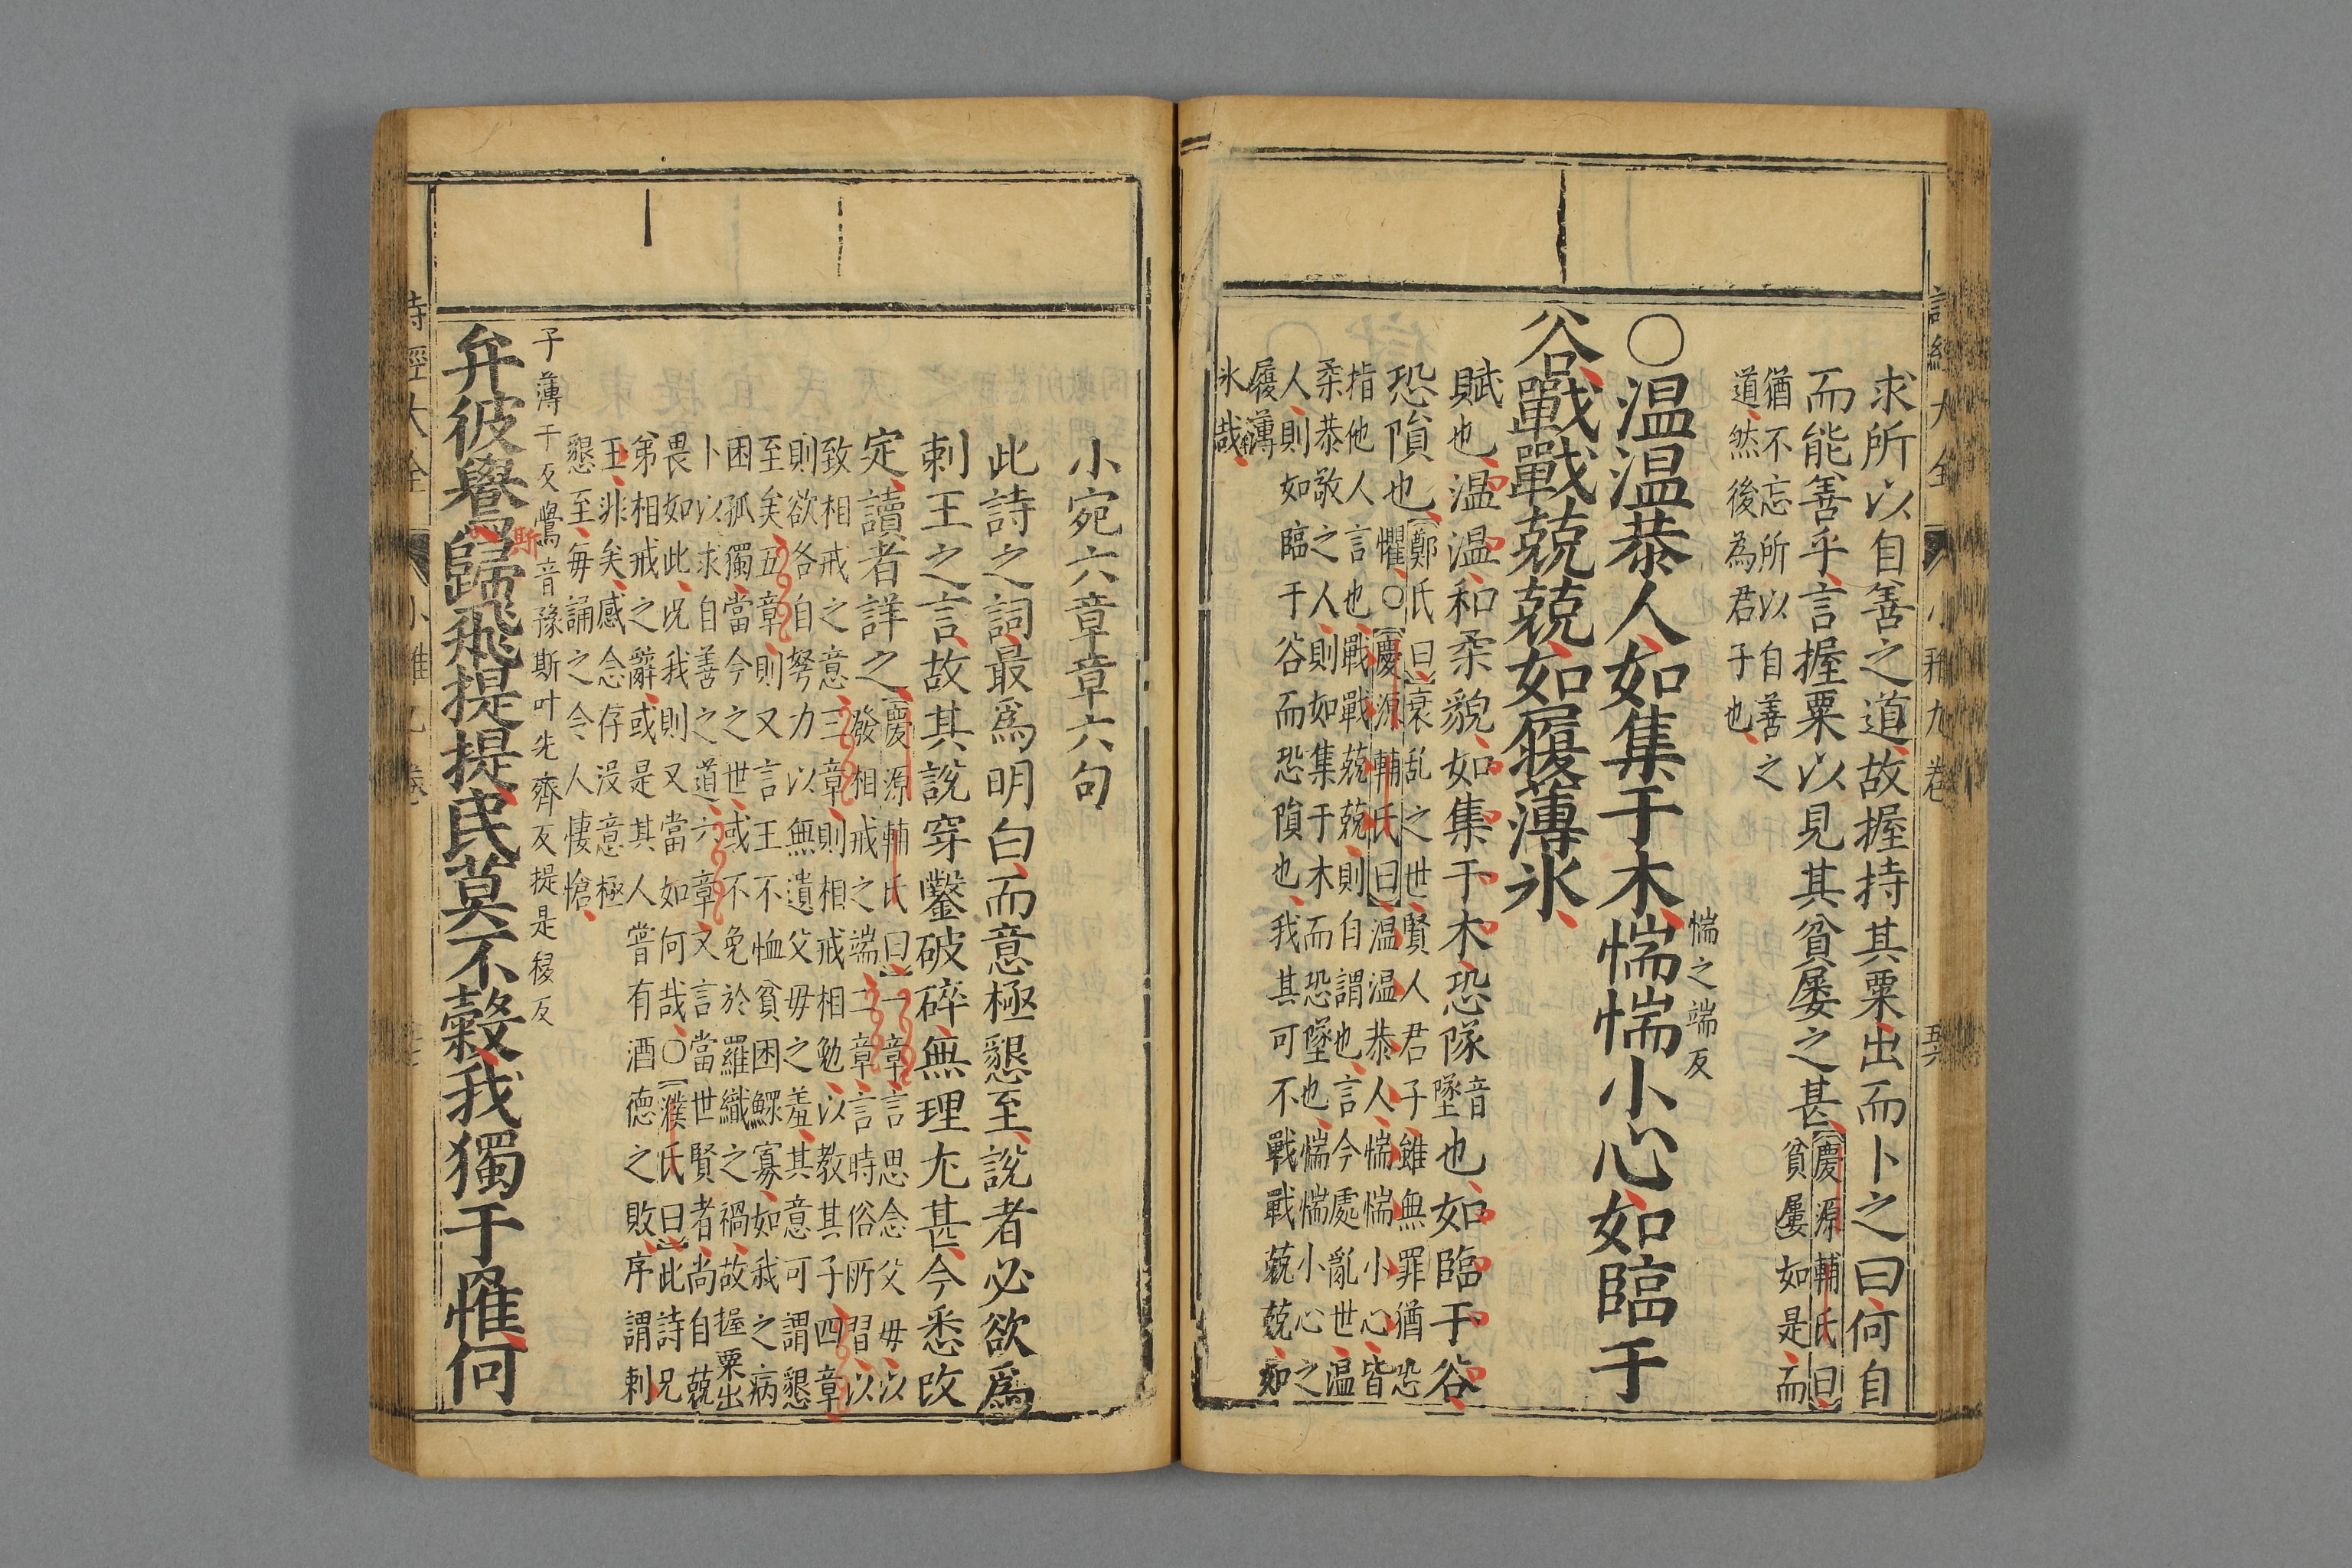 詩經大全 小雅九卷 五六
求所以自善之道故握持其粟出而卜之曰何自
而能善乎言握粟以見其貧屢之甚慶源輔氏曰
貧屢如是而
猶不忘所以自善之
道然後為君子也
○温温恭人如集于木惴惴小心如臨于
惴之端反
谷戰戰兢兢如履薄氷
賦也温温和柔貌如集于木恐隊音墜也如臨于谷
恐隕也鄭氏曰衰乱之世賢人君子雖無罪猶恐
懼○慶源輔氏曰温温恭人惴惴小心皆
指他人言也戰戰兢兢則自謂也言今處亂世温
柔恭敬之人則如集于木而恐墜也惴惴小心之
人則如臨于谷而恐隕也我其可不戰戰兢兢如
履薄
氷哉
小宛六章章六句
此詩之詞最爲明白而意極懇至說者必欲爲
刺王之言故其說穿鑿破碎無理尢甚今悉改
定讀者詳之慶源輔氏曰一章言思念父毋以
發相戒之端二章言時俗所習以
致相戒之意三章則相戒相勉以教其子四章
則欲各自努力以無遺父毋之羞其意可謂懇
至矣五章則又言王不恤貧困鰥寡如我之病
困孤獨當今之世或不免於羅織之禍故握粟出
卜以求自善之道六章又言當世賢者尚自兢
畏如此况我則又當如何哉○濮氏曰此詩兄
弟相戒之辭或是其人甞有酒德之敗序謂刺
王非矣感念存没意極
懇至毎誦之令人悽愴
子薄干反鸒音豫斯叶先齊反提是移反
弁彼鸒斯歸飛提提民莫不糓我獨于罹何
詩經大全 小雅九卷